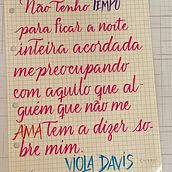 Não Tenho TEMPO
para ficar a noite
inteira acordada
me preocupando
com aquilo que al-
guém que não me
AMA Tem a dizer so-
bre mim.
VIOLA DAVIS